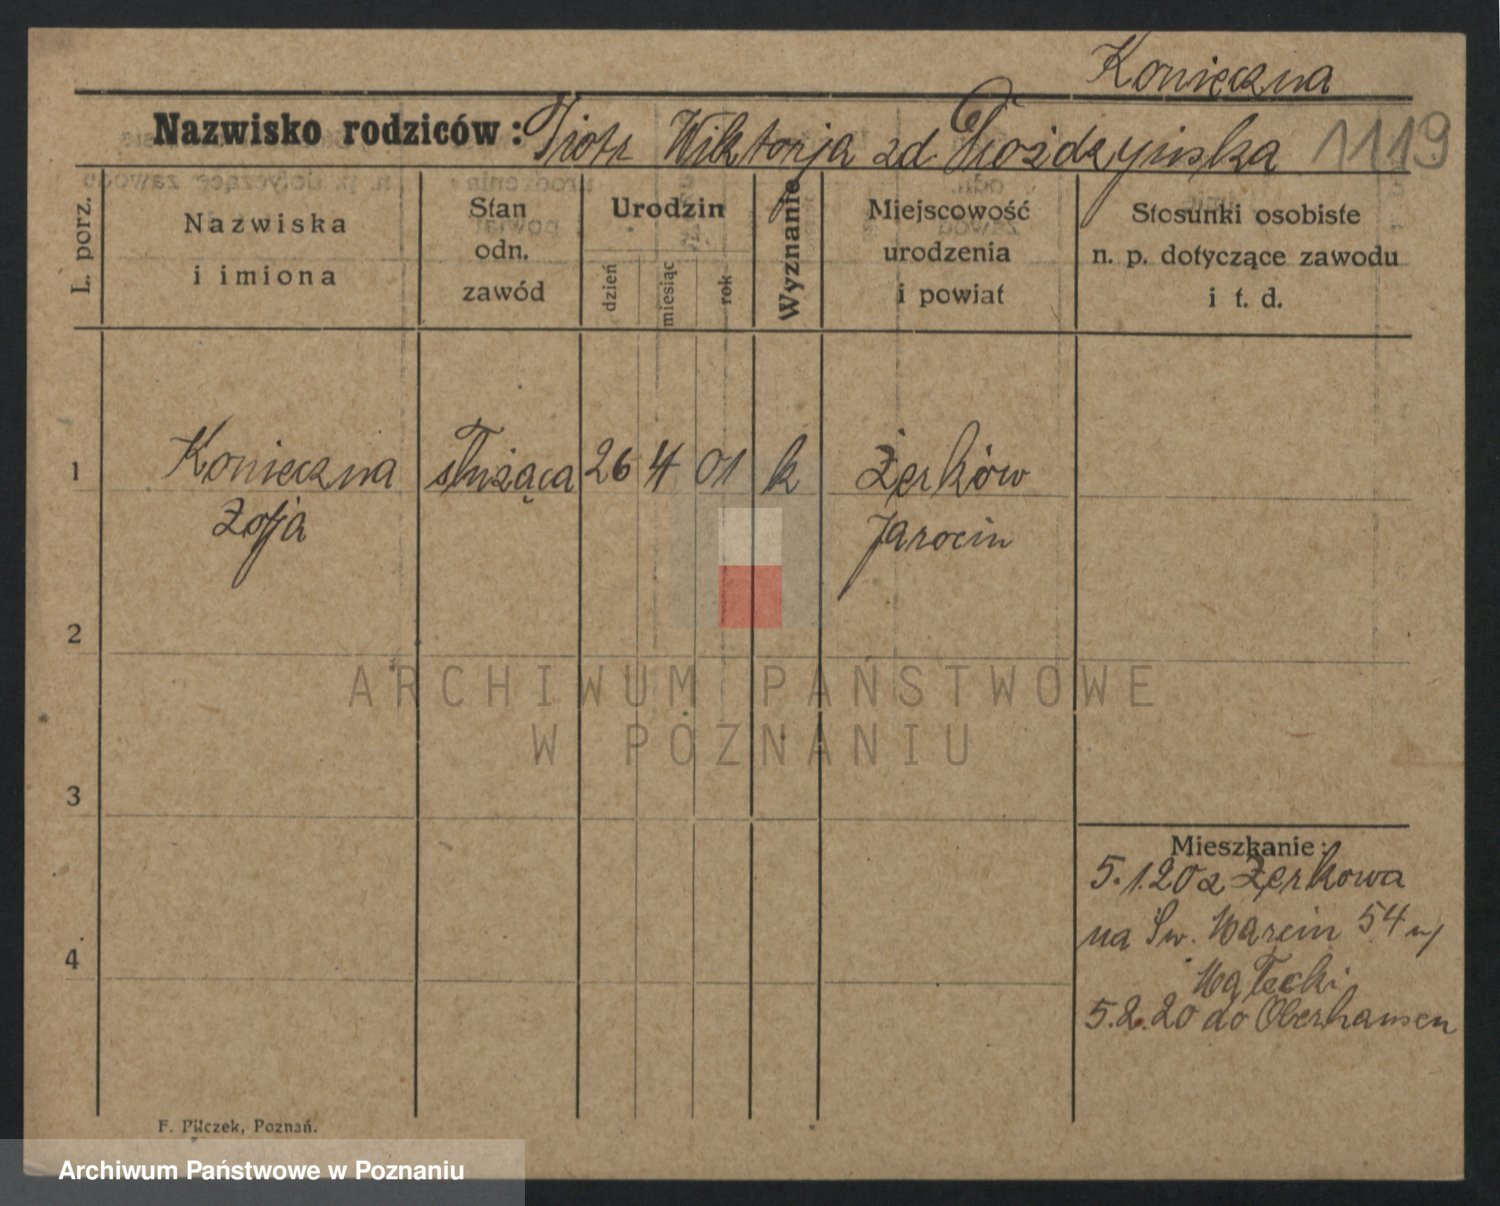 Konieczna
Nazwisko rodziców: Piotr Wiktorja zd 1119
L. porz.
Nazwiska
i imiona
Stan
odn.
zawód
Urodzin
dzień
miesiąc
rok
Wyznanie
Miejscowość
urodzenia
i powiat
Stosunki osobiste
n. p. dotyczące zawodu
i t. d.
1 Konieczna służąca 26 4 01 k Żerków
Zofja Jarocin
2
3
4
Mieszkanie:
5.1.20 z Żerkowa
na Św. Marcin 54
5.2.20 do Oberhausen
F. Pilczek, Poznań.
ARCHIWUM PAŃSTWOWE
W POZNANIU
Archiwum Państwowe w Poznaniu